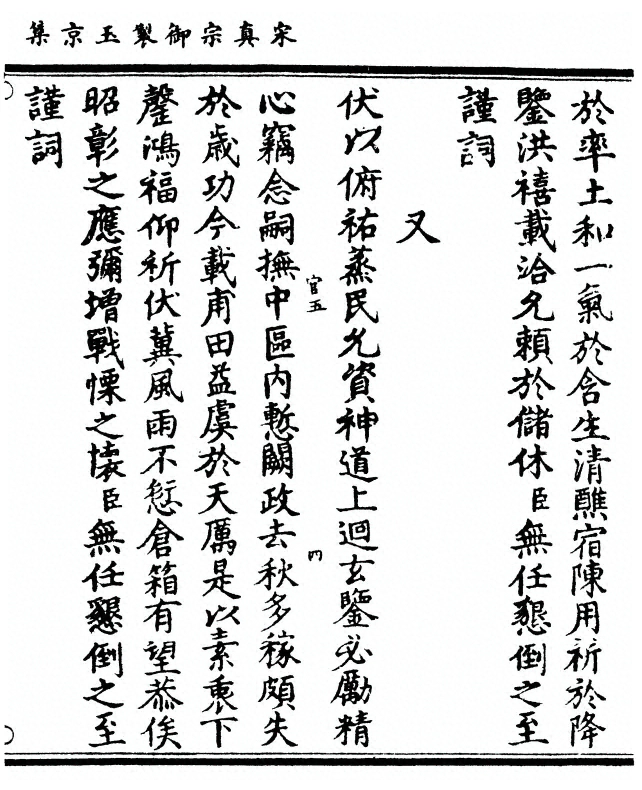 宋真宗御製玉京集
於率土和一氣於含生清醮宿陳用祈於降
鑒洪禧載洽允頼於儲休臣無任懇倒之至
謹詞
又
伏以俯祐蒸民允資神道上迴玄鑒必勵精
官五
四
心竊念嗣撫中區内慙闕政去秋多稼頗失
於歳功今載甫田益虞於天厲是以素衷下
罄鴻福仰祈伏冀風雨不愆倉箱有望恭俟
昭彰之應彌增戰慄之懐臣無任懇倒之至
謹詞